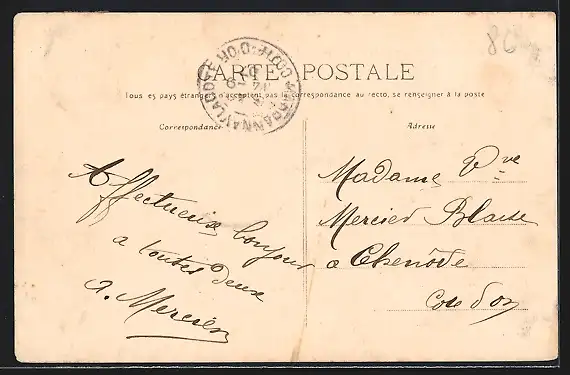 CARTE POSTALE
Tous les pays étrangers n'acceptent pas la correspondance au recto, se renseigner à la poste
Correspondance
Affectueux bonjour
a toutes deux
A. Mercier
Adresse
Madame Vve
Mercier Blaise
a Chenôve
Cote d'or
80
COTE-D'OR